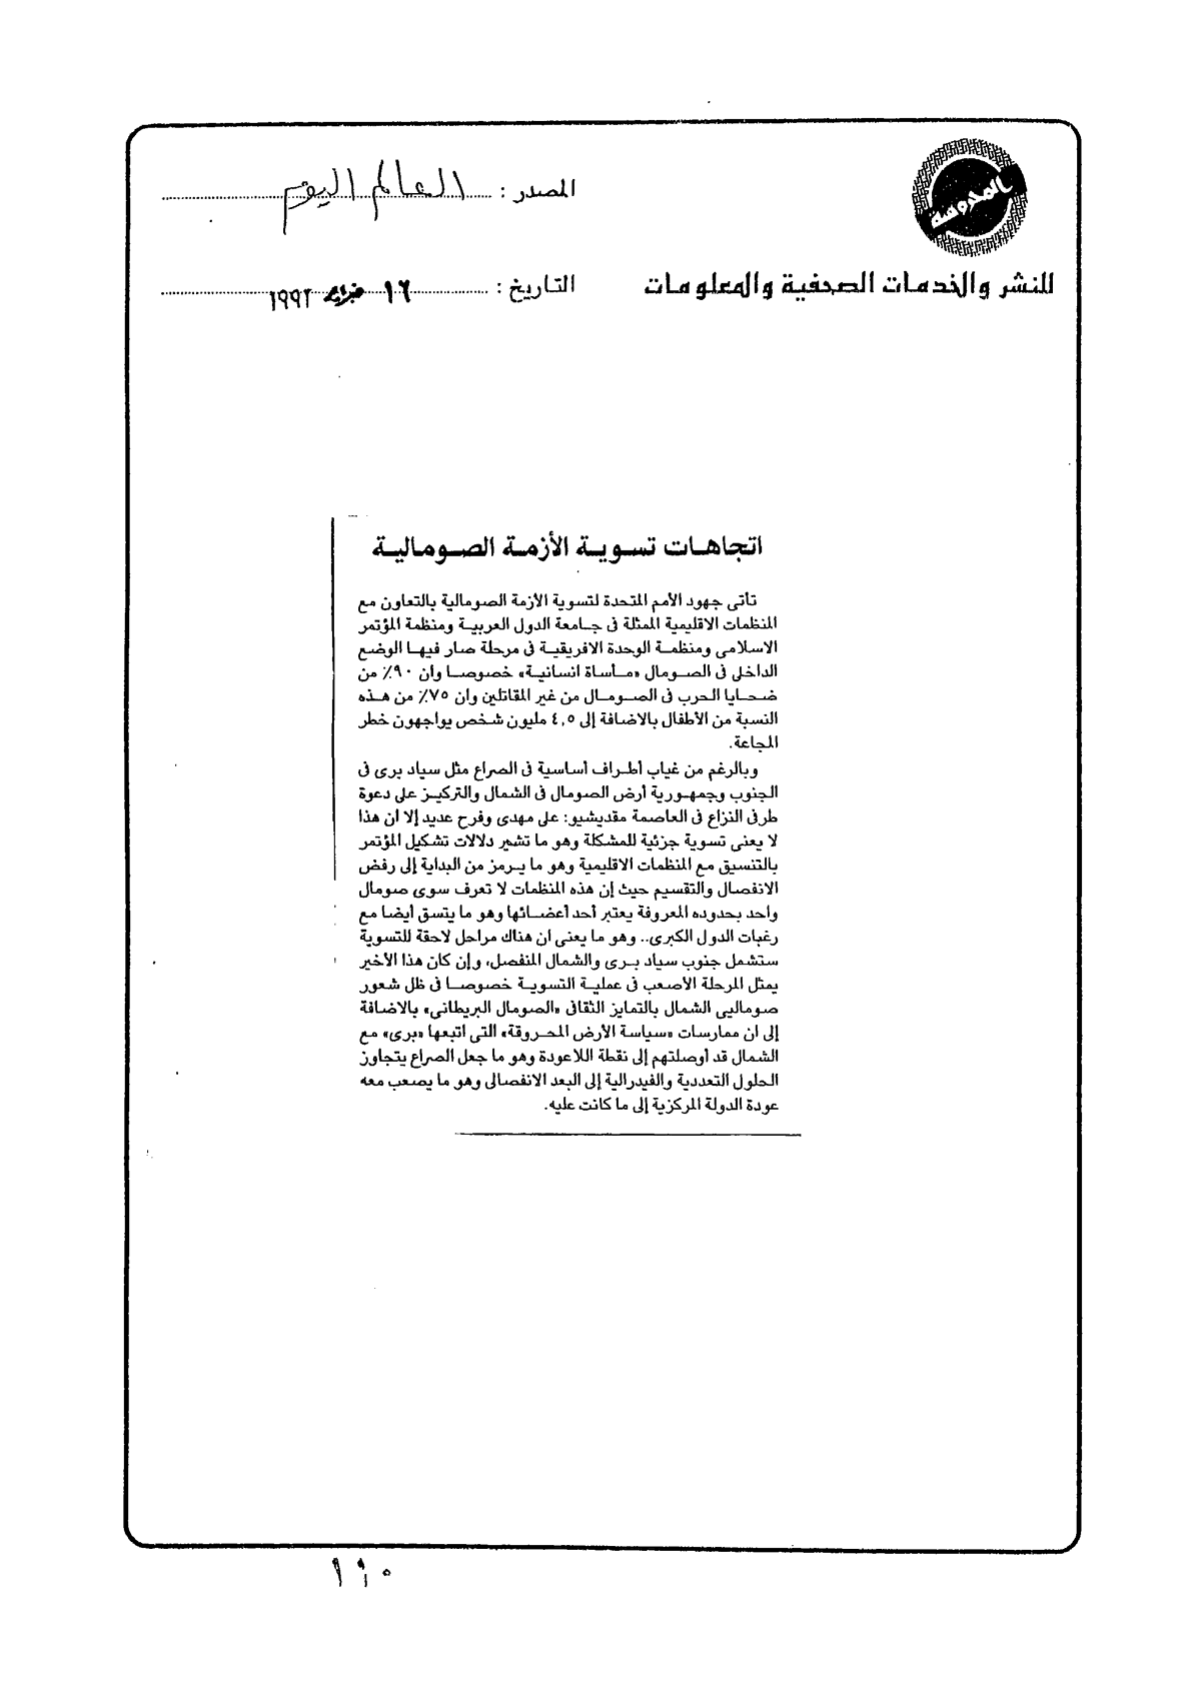 المحروسة
المصدر : العالم اليوم
للنشر والخدمات الصحفية والمعلومات
التاريخ : ١٦ فبراير ١٩٩٢
اتجاهات تسوية الأزمة الصومالية
تأتى جهود الأمم المتحدة لتسوية الأزمة الصومالية بالتعاون مع
المنظمات الاقليمية الممثلة فى جامعة الدول العربية ومنظمة المؤتمر
الاسلامى ومنظمة الوحدة الافريقية فى مرحلة صار فيها الوضع
الداخلى فى الصومال «مأساة انسانية» خصوصا وان ٩٠٪ من
ضحايا الحرب فى الصومال من غير المقاتلين وان ٧٥٪ من هذه
النسبة من الأطفال بالاضافة إلى ٤,٥ مليون شخص يواجهون خطر
المجاعة.
وبالرغم من غياب أطراف أساسية فى الصراع مثل سياد برى فى
الجنوب وجمهورية أرض الصومال فى الشمال والتركيز على دعوة
طرفى النزاع فى العاصمة مقديشيو: على مهدى وفرح عديد إلا ان هذا
لا يعنى تسوية جزئية للمشكلة وهو ما تشير دلالات تشكيل المؤتمر
بالتنسيق مع المنظمات الاقليمية وهو ما يرمز من البداية إلى رفض
الانفصال والتقسيم حيث إن هذه المنظمات لا تعرف سوى صومال
واحد بحدوده المعروفة يعتبر أحد أعضائها وهو ما يتسق أيضا مع
رغبات الدول الكبرى.. وهو ما يعنى ان هناك مراحل لاحقة للتسوية
ستشمل جنوب سياد برى والشمال المنفصل، وإن كان هذا الأخير
يمثل المرحلة الأصعب فى عملية التسوية خصوصا فى ظل شعور
صوماليى الشمال بالتمايز الثقافى «الصومال البريطانى» بالاضافة
إلى ان ممارسات «سياسة الأرض المحروقة» التى اتبعها «برى» مع
الشمال قد أوصلتهم إلى نقطة اللاعودة وهو ما جعل الصراع يتجاوز
الحلول التعددية والفيدرالية إلى البعد الانفصالى وهو ما يصعب معه
عودة الدولة المركزية إلى ما كانت عليه.